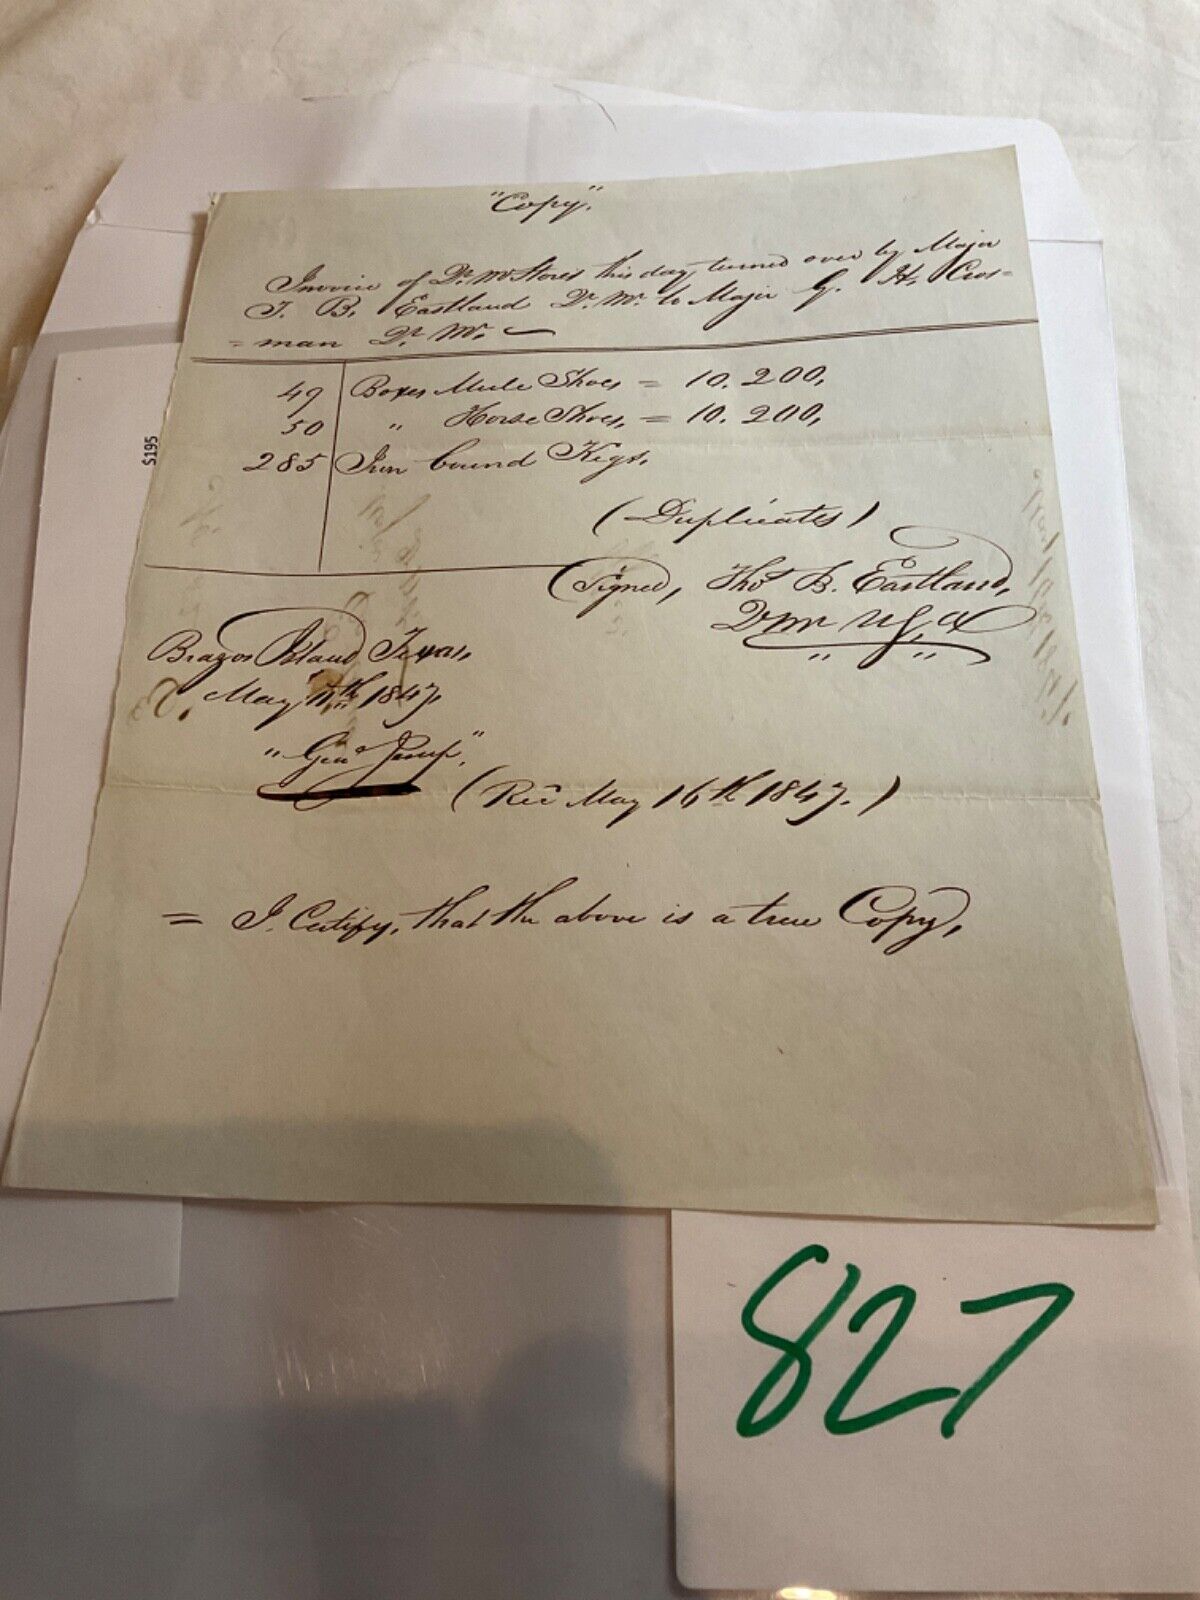 "Copy".
Invoice of Qr. Mr Stores this day, turned over by Major
T. B. Eastland Qr. Mr. to Major G. H. Cros=
=man Qr. Mr.
49 Boxes Mule Shoes = 10.200,
50 " Horse Shoes, = 10.200,
285 Iron bound Kegs.
(Duplicates)
(Signed, Thos B. Eastland,
Qmr U.S.A
" "
Brazos Island Texas,
May 11th 1847.
"Genl Jesup,"
(Rec May 16th 1847.)
= I. Certify, that the above is a true Copy,
5195
827